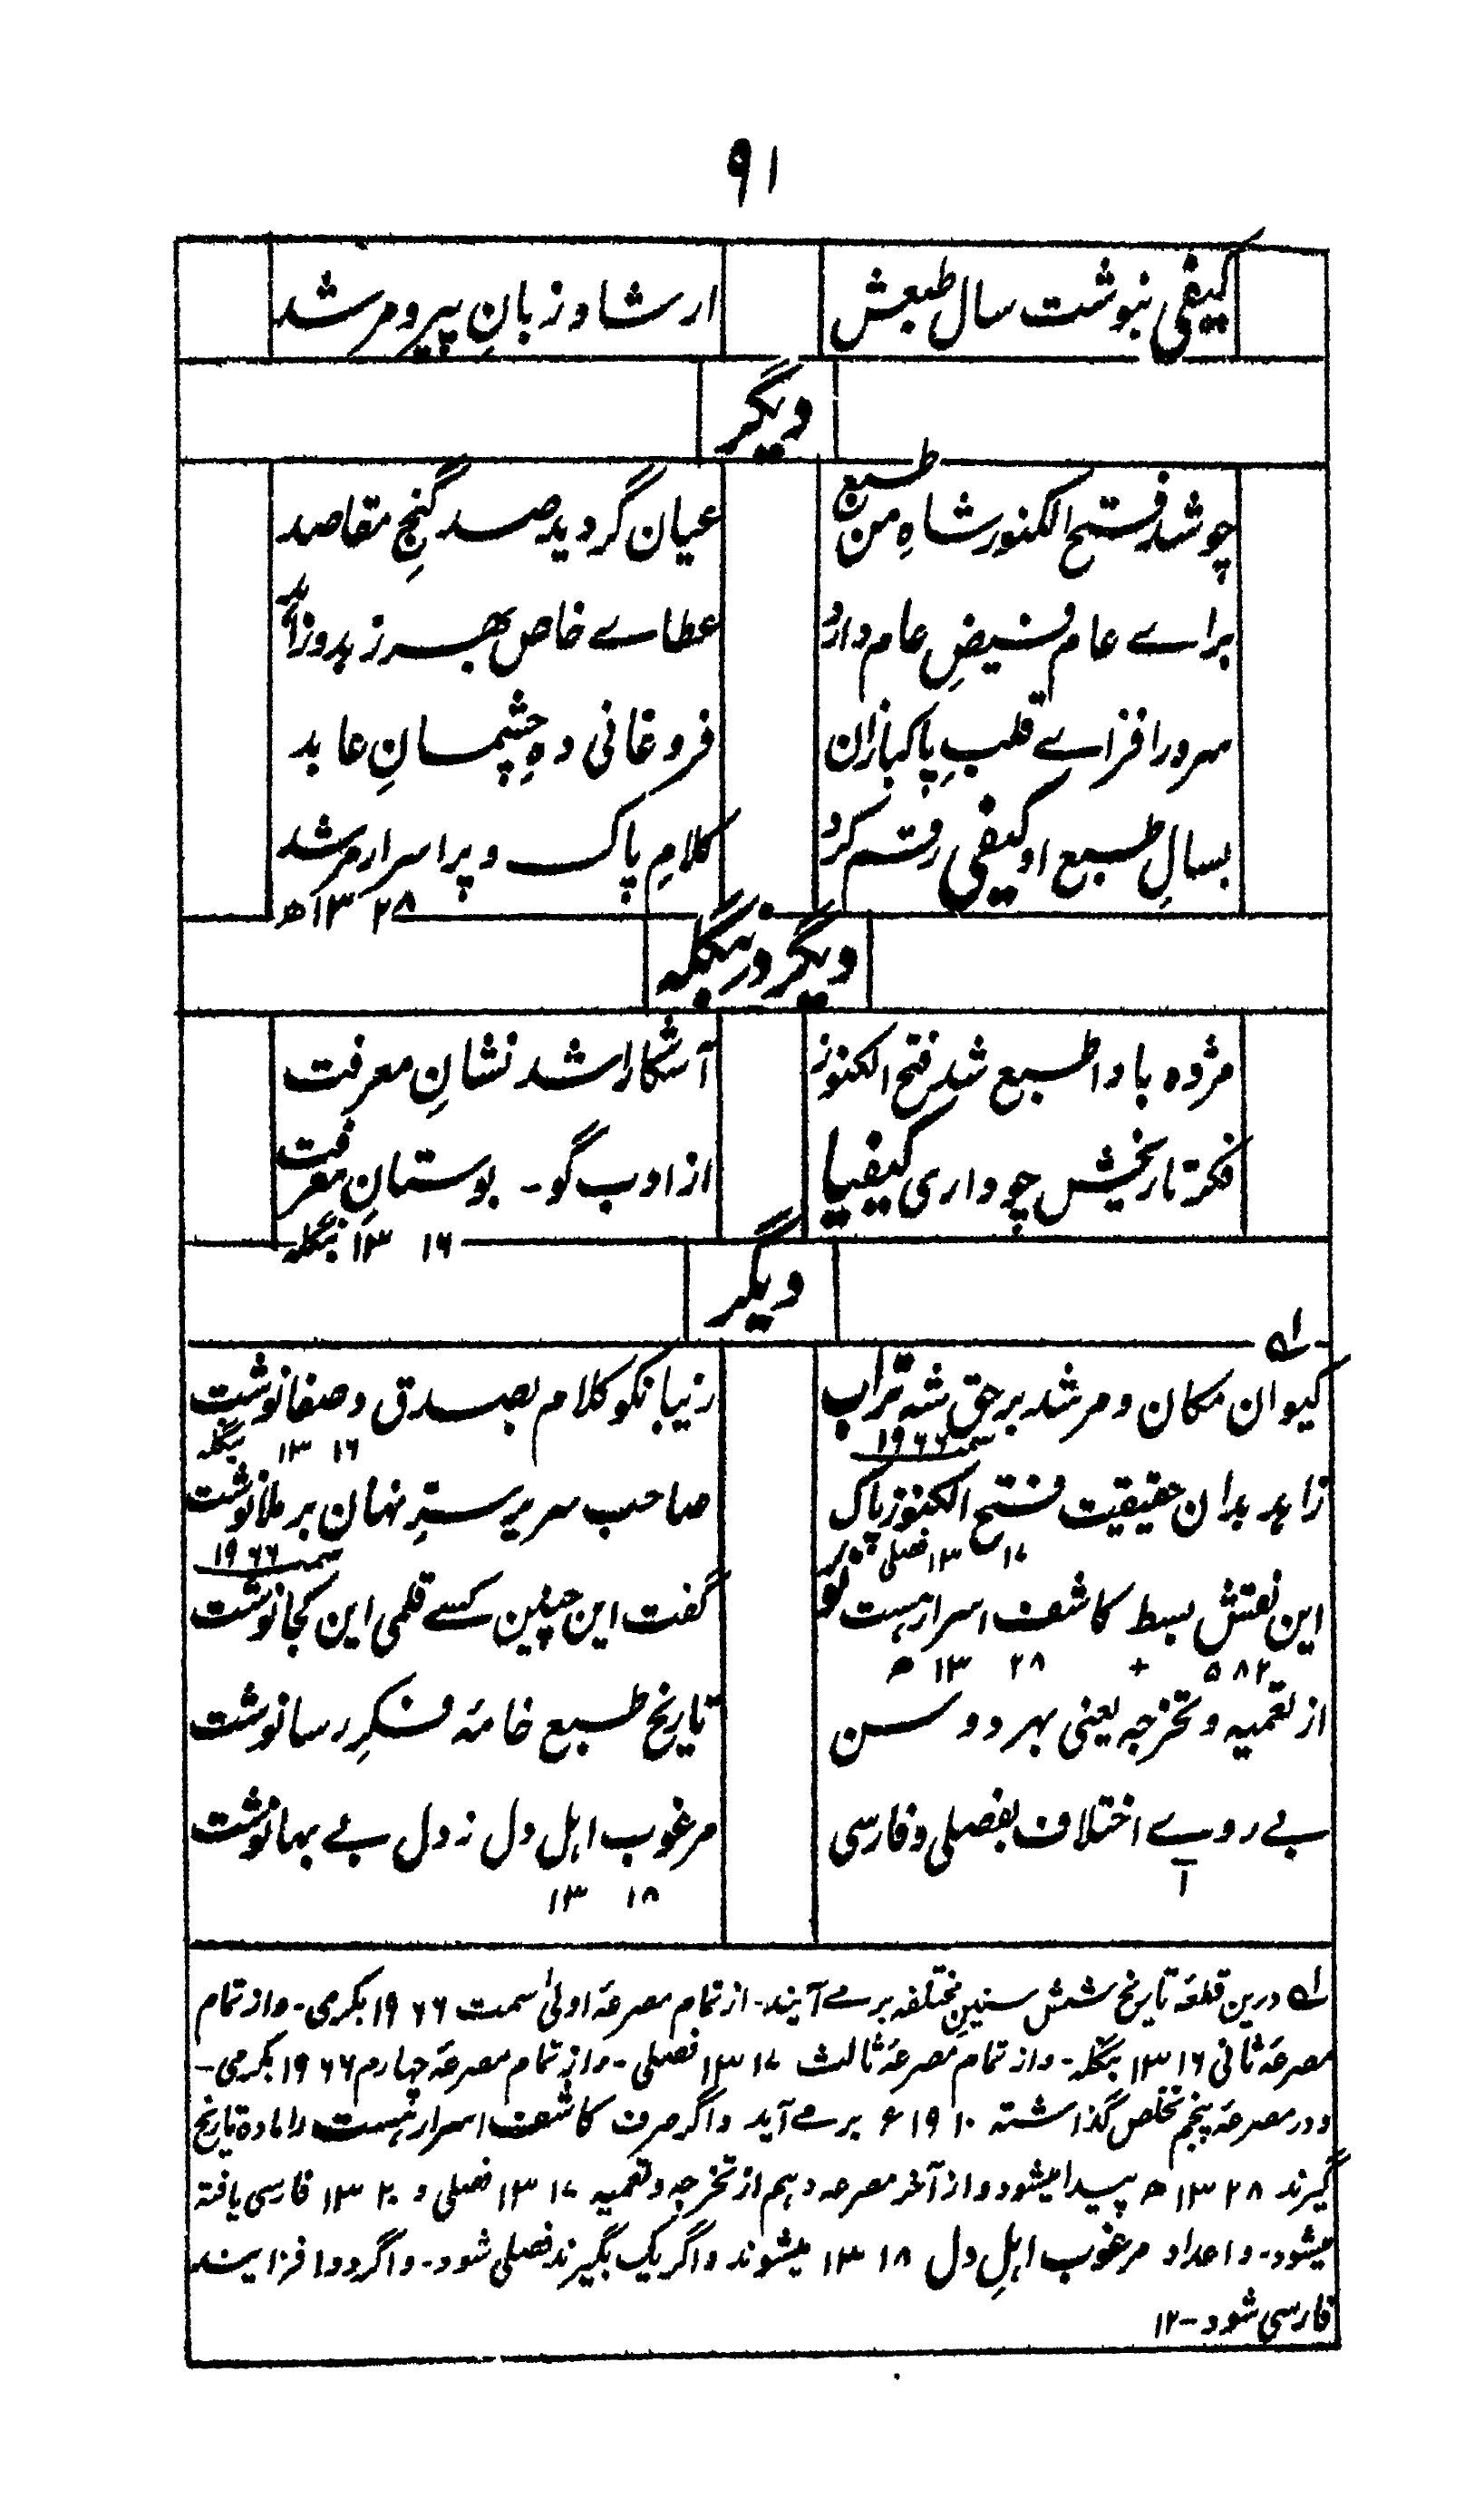 ۹۱
کیفی بنوشت سال طبعش ارشاد زبانِ پیر و مرشد
دیگر
چو شد فتح الکنوز شاہِ من طبع عیان گردید صد گنجِ مقاصد
براے عام فیضِ عام دارد عطاے خاص بہر زہد و زاہد
سرور افزاے قلبِ پاکبازان فروغانی دہِ چشمانِ عابد
بسالِ طبع او کیفی رقم کرد کلامِ پاک و پر اسرار مرشد
۱۳۲۸ھ
دیگر در بنگلہ
مژدہ بادا طبع شد فتح الکنوز آشکارا شد نشانِ معرفت
فکر تاریخش چو داری کیفیا از ادب گو۔ بوستانِ معرفت
۱۳۱۶ بنگلہ
دیگر
لہ
کیوان مکان و مرشد برحق شہ تراب زیبا نکو کلام بصدق و صفا نوشت
سمت ۱۹۶۶ ۱۳۱۶ بنگلہ
زاہد بدان حقیقت فتح الکنوز پاک صاحب سریر سترِ نہان برملا نوشت
۱۳۱۷ فصلی سمت ۱۹۶۶
این نقش بسط کاشف اسرار ہست گفت این چنین کسے قلمی این کجا نوشت
۵۸۲ + ۱۳۲۸ھ
از تعمیہ و تخرجہ یعنی بہر دو سن تاریخ طبع خامۂ فکرِ رسا نوشت
بے روے اختلاف بفصلی و فارسی مرغوب اہل دل ز دل بے بہا نوشت
آ ۱۳۱۸
لہ درین قطعۂ تاریخ شش سنینِ مختلفہ برمے آیند۔ از تمام مصرعۂ اولیٰ سمت ۱۹۶۶ بکرمی۔ و از تمام
مصرعۂ ثانی ۱۳۱۶ بنگلہ۔ و از تمام مصرعۂ ثالث ۱۳۱۷ فصلی۔ و از تمام مصرعۂ چہارم ۱۹۶۶ بکرمی۔
و در مصرعۂ پنجم تخلص گذاشتہ ۱۹۱۰ء برمے آید و اگر صرف کاشف اسرار ہست را مادہ تاریخ
گیرند ۱۳۲۸ھ پیدا میشود و از آخر مصرعہ دہم از تخرجہ و تعمیہ ۱۳۱۷ فصلی و ۱۳۲۰ فارسی یافتہ
میشود۔ و اعداد مرغوب اہلِ دل ۱۳۱۸ میشوند و اگر یک بگیرند فصلی شود۔ و اگر دو افزایند
فارسی شود۔ ۱۲